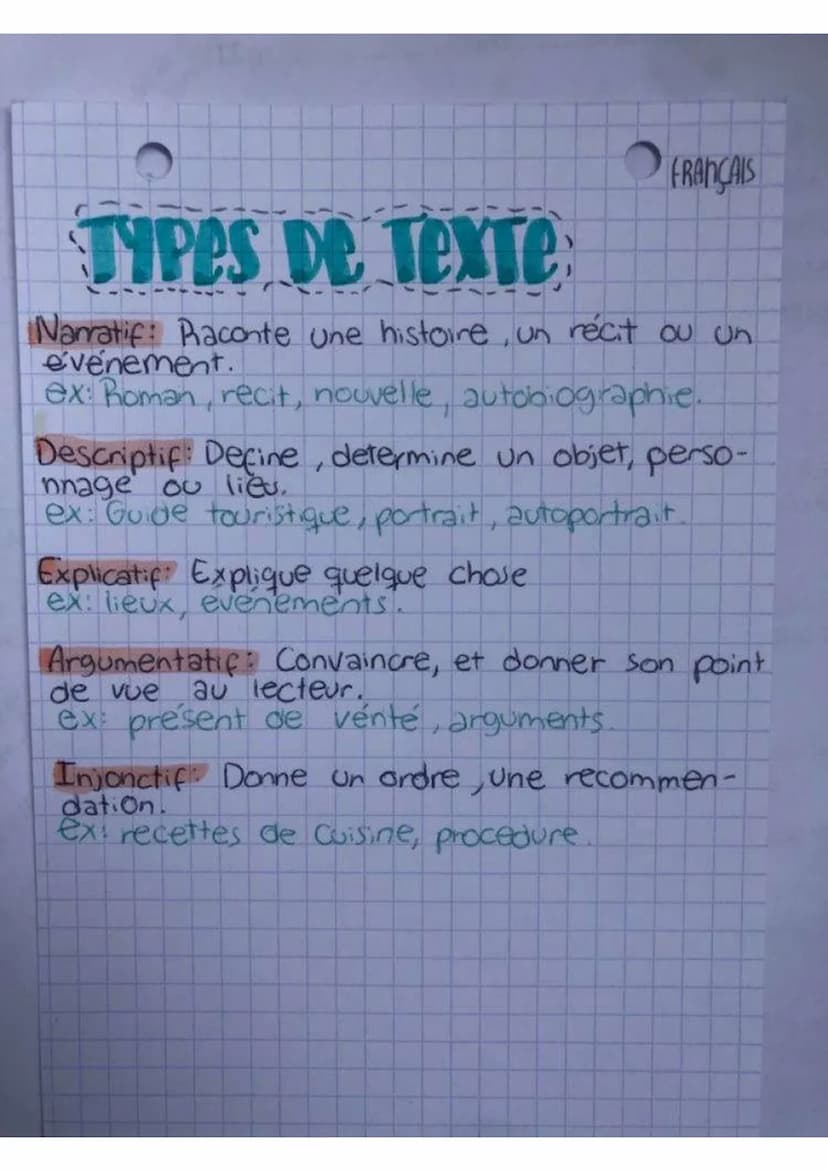 FRANÇAIS
TYPES DE TEXTE
Narratif: Raconte une histoire, un récit ou un
événement.
ex: Roman, recit, nouvelle, autobiographie.
Descriptif: Define, determine un objet, perso-
nnage ou lieu.
ex: Guide touristique, portrait, autoportrait.
Explicatif: Explique quelque chose
ex: lieux, evénements.
Argumentatif: Convaincre, et donner son point
de vue au lecteur.
ex: présent de vérité, arguments.
Injonctif: Donne un ordre, une recommen-
dation.
ex: recettes de cuisine, procedure.